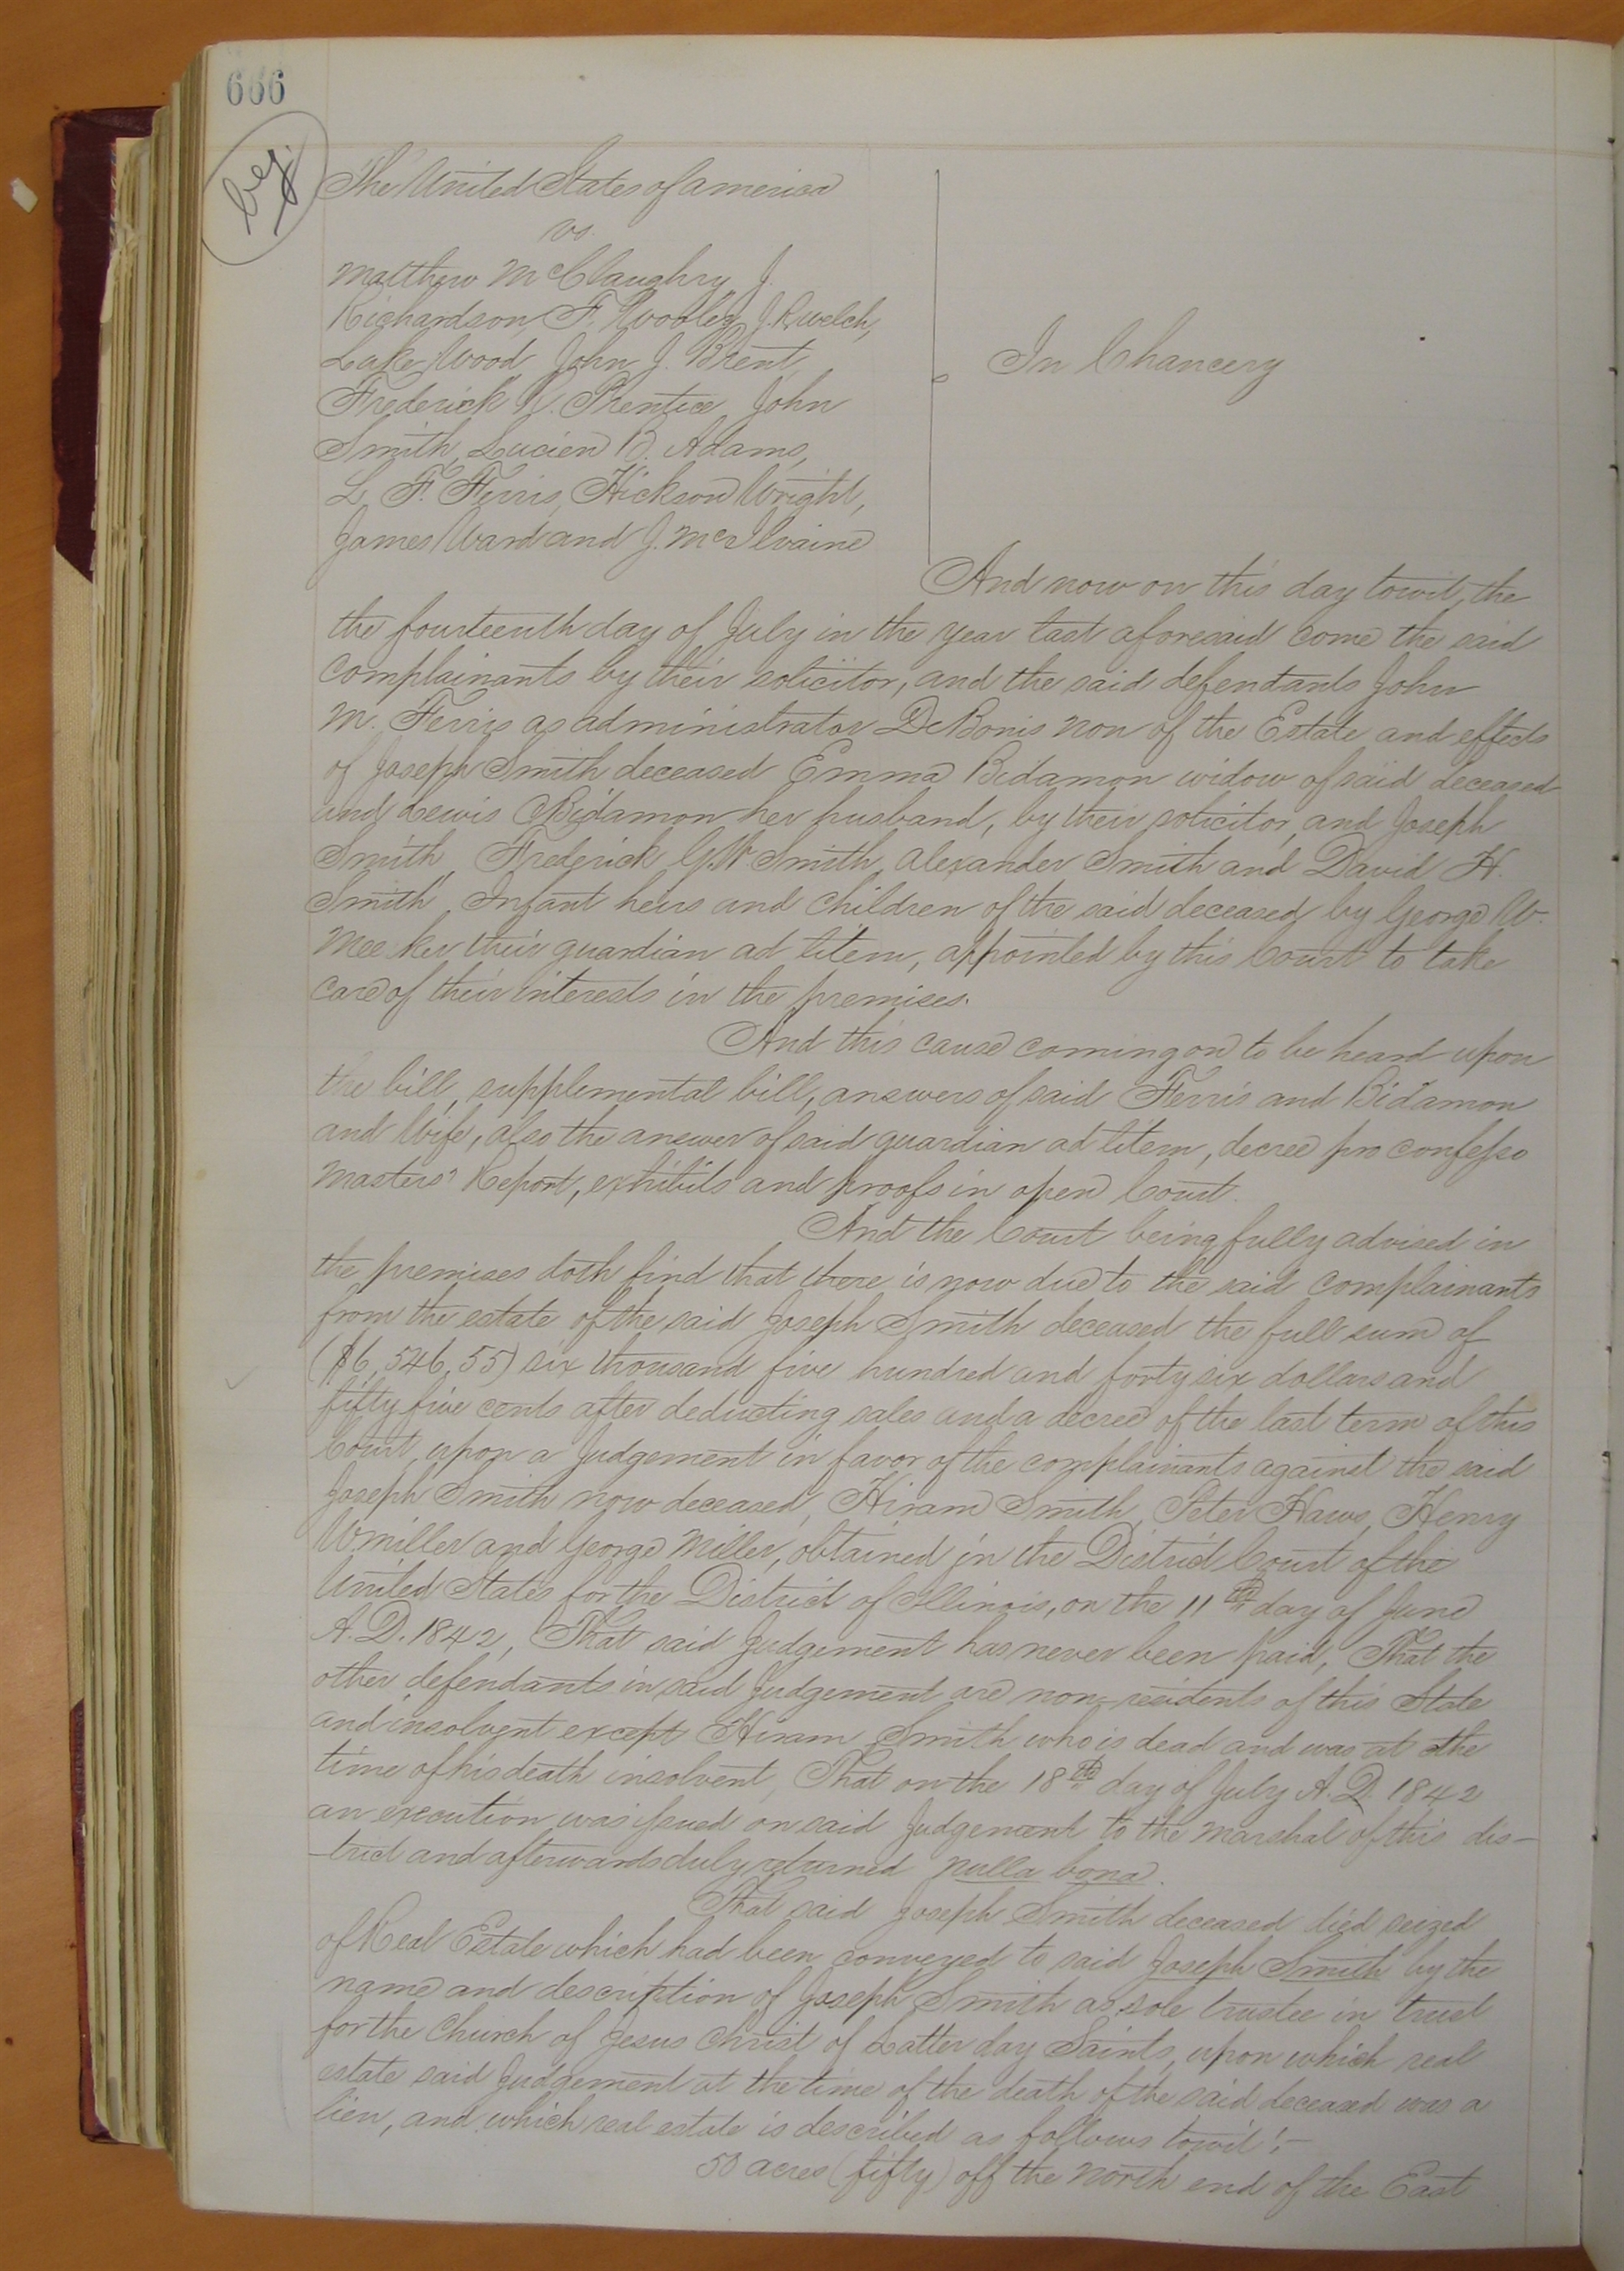 666
beg.
The United States of America
vs.
Matthew McClaughry J.
Richardson, F. Wooley J. R. Welch,
Luke Wood, John J. Brent,
Frederick R. Prentice John
Smith, Lucien B. Adams,
L. F. Ferris, Hickson Wright,
James Ward and J. McIlvaine
In Chancery
And now on this day towit, the
the fourteenth day of July in the year last aforesaid come the said
complainants by their solicitor, and the said defendants John
M. Ferris as administrator De Bonis non of the Estate and effects
of Joseph Smith deceased Emma Bidamon widow of said deceased
and Lewis Bidamon her husband, by their solicitor, and Joseph
Smith, Frederick G. W. Smith, Alexander Smith and David H.
Smith, Infant heirs and children of the said deceased, by George W.
Meeker their guardian ad litem, appointed by this Court to take
care of their interests in the premises.
And this cause coming on to be heard upon
the bill, supplemental bill, answers of said Ferris and Bidamon
and Wife, also the answer of said guardian ad litem, decree pro confesso
Masters' Report, exhibits and proofs in open Court.
And the Court being fully advised in
the premises doth find that there is now due to the said complainants
from the estate of the said Joseph Smith deceased the full sum of
($6,546,55) six thousand five hundred and forty six dollars and
fifty five cents after deducting sales and a decree of the last term of this
Court, upon a Judgement in favor of the complainants against the said
Joseph Smith now deceased, Hiram Smith, Peter Haws, Henry
W. Miller and George Miller, obtained in the District Court of the
United States for the District of Illinois, on the 11th day of June
A.D. 1842, That said Judgement has never been paid, That the
other defendants in said Judgement are non-residents of this State
and insolvent except Hiram Smith who is dead and was at the
time of his death insolvent, That on the 18th day of July A.D. 1842
an execution was issued on said Judgement to the Marshal of this dis-
-trict and afterwards duly returned nulla bona.
That said Joseph Smith deceased died seized
of Real Estate which had been conveyed to said Joseph Smith by the
name and description of Joseph Smith as sole trustee in trust
for the Church of Jesus Christ of Latter day Saints, upon which real
estate said Judgement at the time of the death of the said deceased was a
lien, and which real estate is described as follows towit:-
50 acres (fifty) off the North end of the East